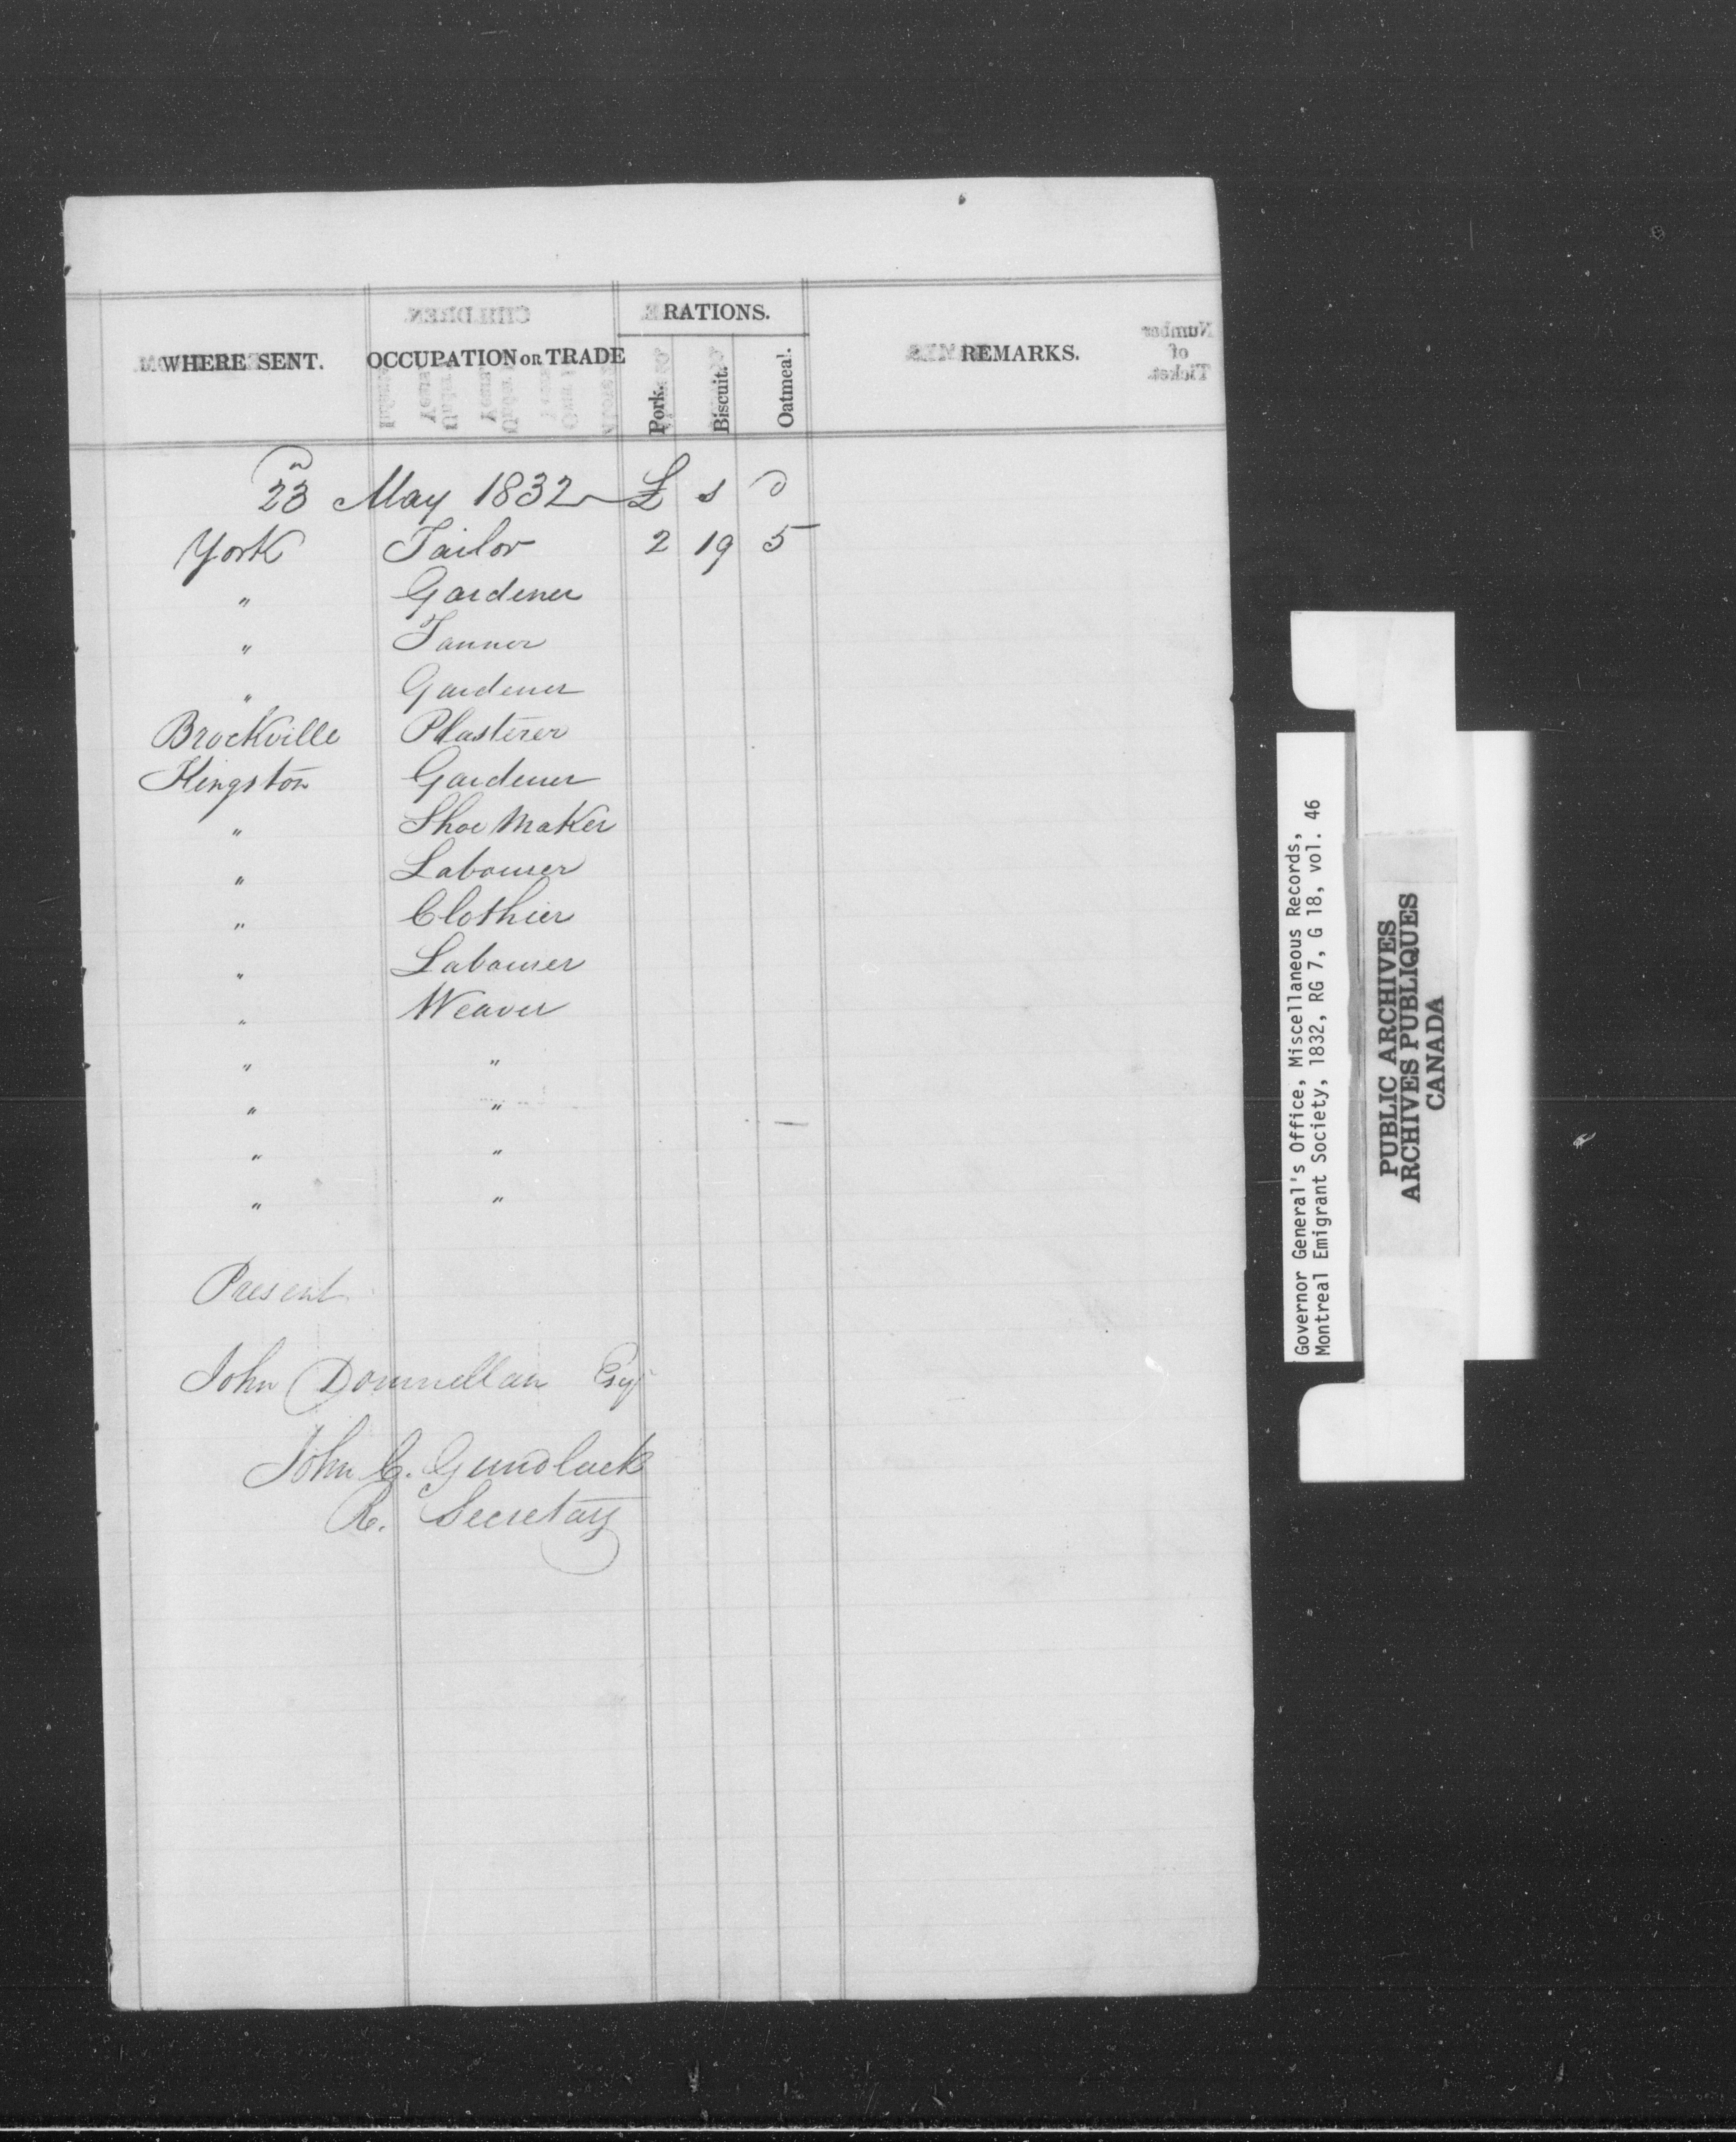 WHERE SENT. OCCUPATION OR TRADE RATIONS. REMARKS.
Pork. Biscuit. Oatmeal.
23 May 1832 £ s d
York Tailor 2 19 5
" Gardener
" Tanner
" Gardener
Brockville Plasterer
Kingston Gardener
" Shoe Maker
" Labourer
" Clothier
" Labourer
" Weaver
" "
" "
" "
" "
Present
John Donnellan Esqr
John C. Gundlack
R. Secretary
Governor General's Office, Miscellaneous Records,
Montreal Emigrant Society, 1832, RG 7, G 18, vol. 46
PUBLIC ARCHIVES
ARCHIVES PUBLIQUES
CANADA